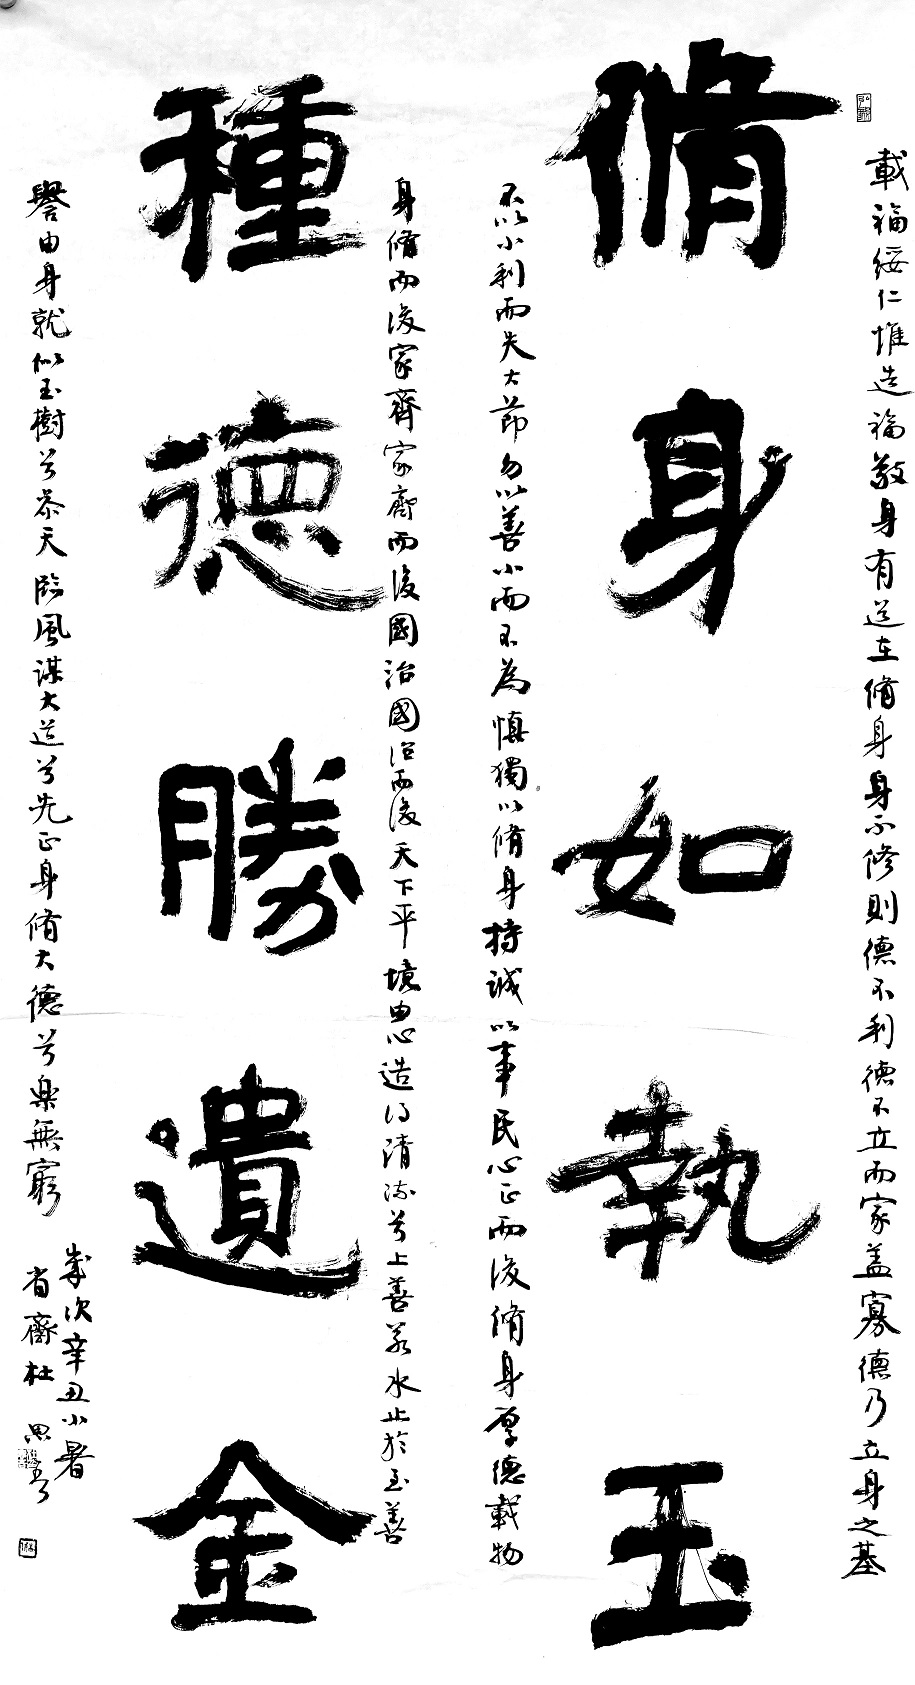 載福綏仁惟造福敬身有道在脩身身不修則德不利德不立而家盖寡德乃立身之基
脩身如執玉
不以小利而失大節勿以善小而不為慎獨以脩身持誠以事民心正而後脩身厚德載物
身脩而後家齊家齊而後國治國治而後天下平境由心造得清流兮上善若水止於至善
種德勝遺金
譽由身就似玉樹兮參天臨風謀大道兮先正身脩大德兮樂無窮
歲次辛丑小暑
省齋杜思